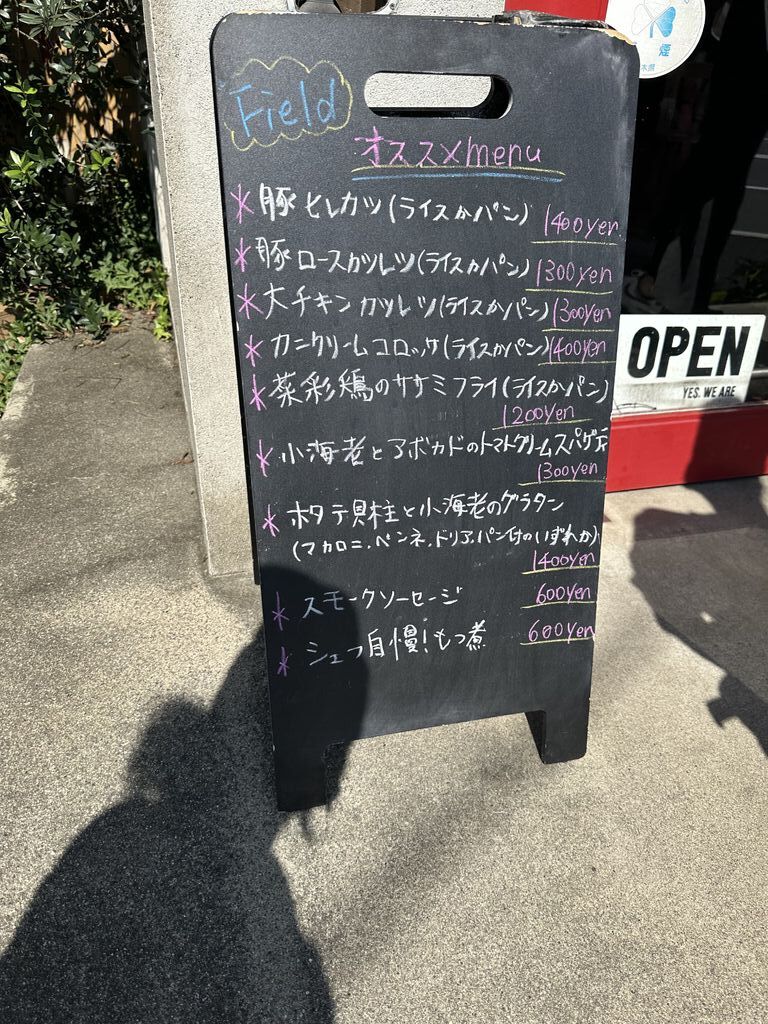 Field
オススメmenu
* 豚ヒレカツ(ライスかパン) 1400yen
* 豚ロースカツレツ(ライスかパン) 1300yen
* 大チキンカツレツ(ライスかパン) 1300yen
* カニクリームコロッケ(ライスかパン) 1400yen
* 菜彩鶏のササミフライ(ライスかパン)
1200yen
* 小海老とアボカドのトマトクリームスパゲティ
1300yen
* ホタテ貝柱と小海老のグラタン
(マカロニ、ペンネ、ドリア、パン付のいずれか)
1400yen
* スモークソーセージ 600yen
* シェフ自慢!もつ煮 600yen
煙
OPEN
YES, WE ARE